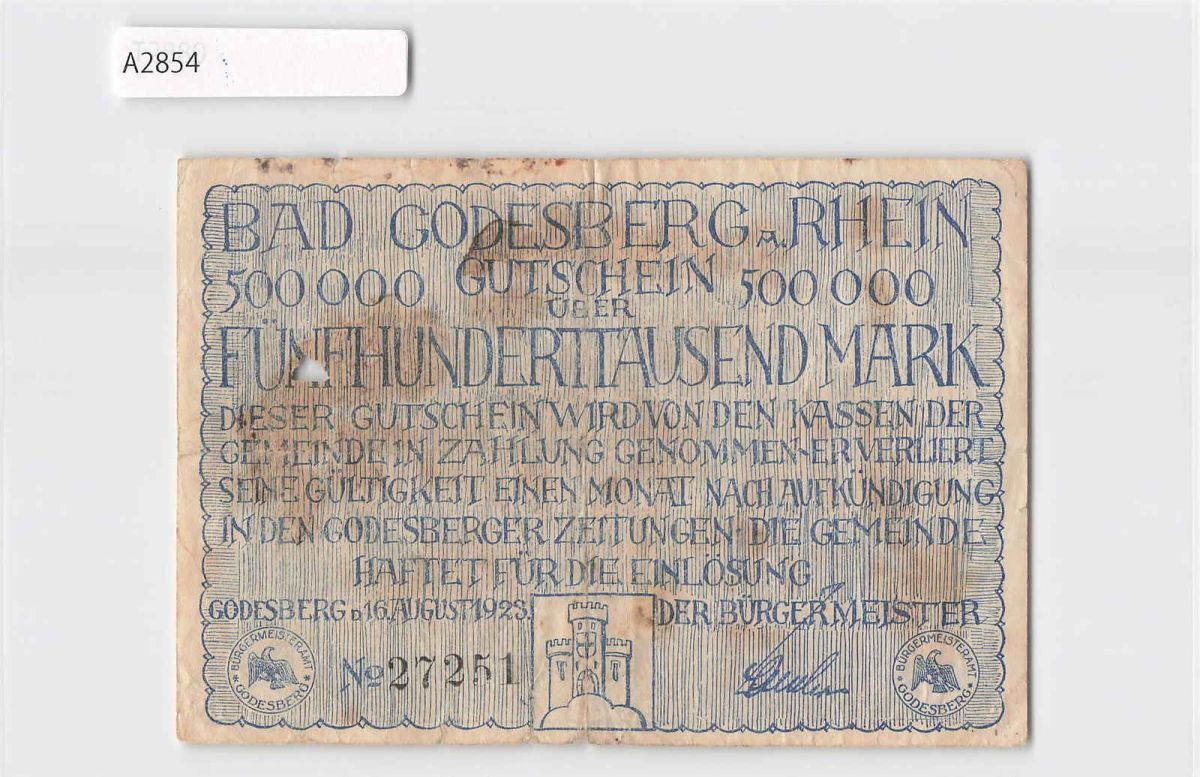 A2854
BAD GODESBERG A. RHEIN
500 000 GUTSCHEIN 500 000
ÜBER
FÜNFHUNDERTTAUSEND MARK
DIESER GUTSCHEIN WIRD VON DEN KASSEN DER
GEMEINDE IN ZAHLUNG GENOMMEN-ER VERLIERT
SEINE GÜLTIGKEIT EINEN MONAT NACH AUFKÜNDIGUNG
IN DEN GODESBERGER ZEITUNGEN. DIE GEMEINDE
HAFTET FÜR DIE EINLÖSUNG
GODESBERG D. 16. AUGUST 1923. DER BÜRGERMEISTER
BÜRGERMEISTERAMT * GODESBERG *
No 27251
BÜRGERMEISTERAMT * GODESBERG *